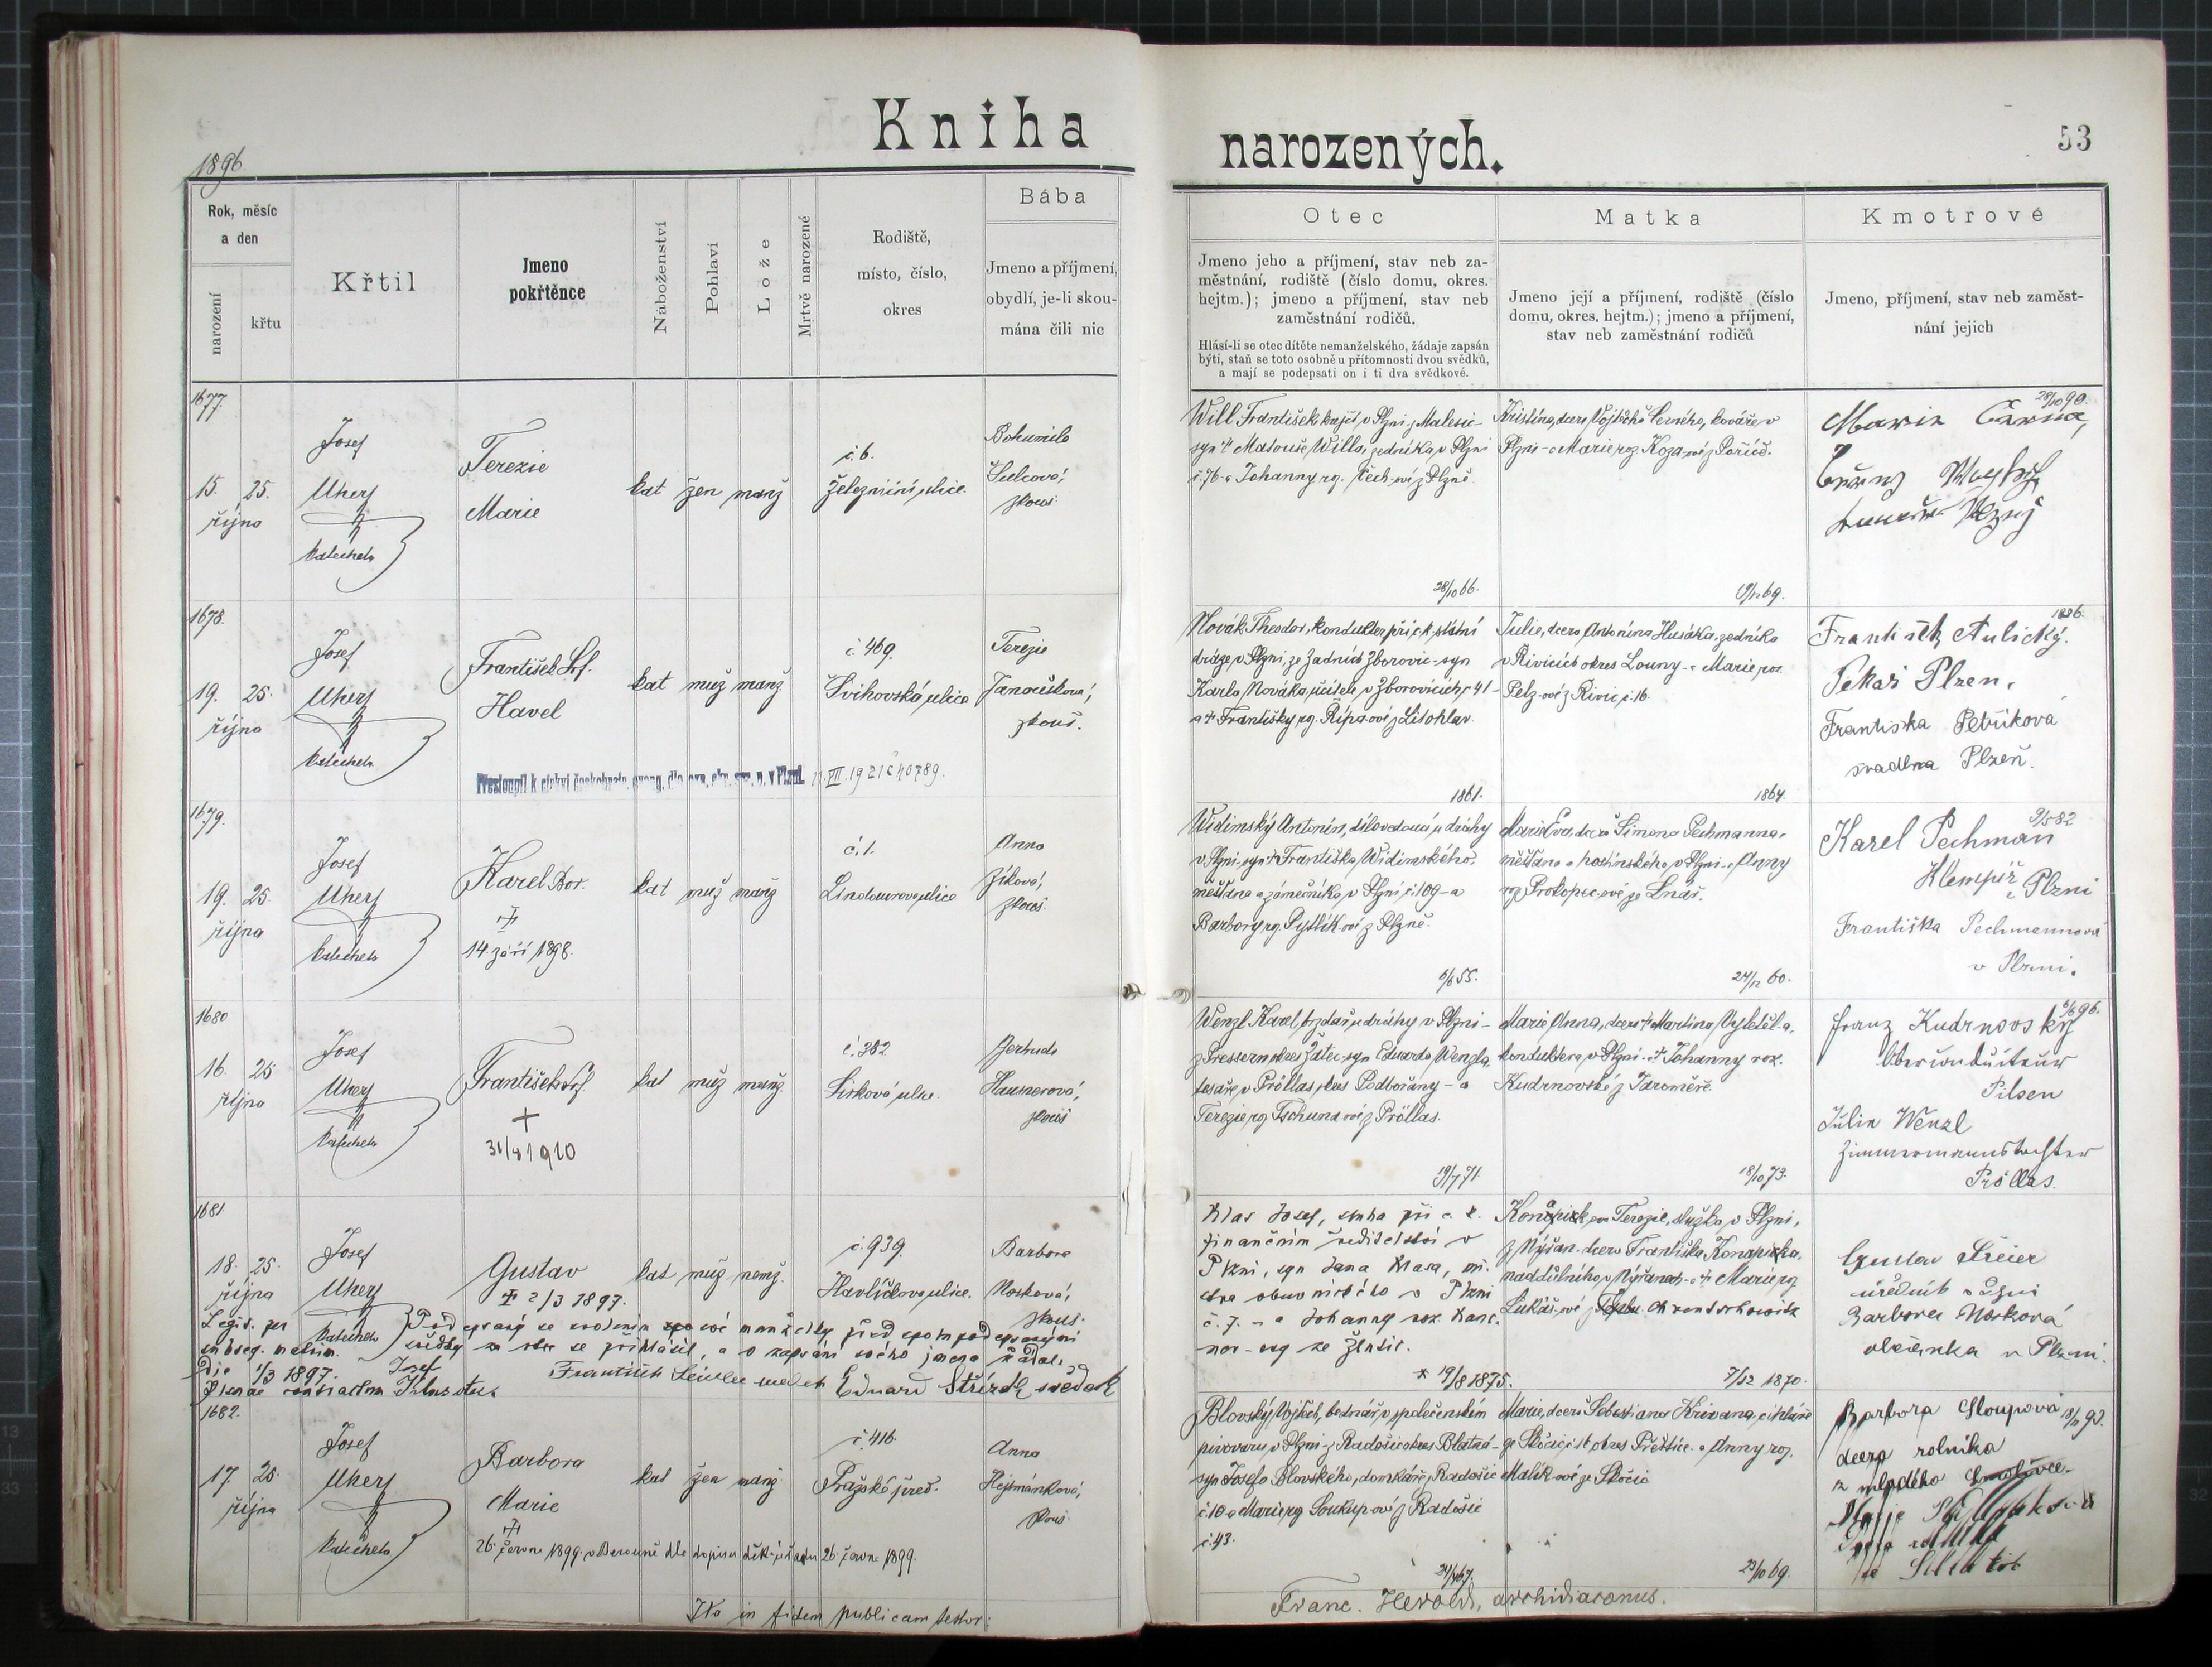 Kniha
narozených.
53
1896.
Rok, měsíc
a den
narození
křtu
Křtil
Jmeno
pokřtěnce
Náboženství
Pohlaví
Lože
Mrtvě narozené
Rodiště,
místo, číslo,
okres
Bába
Jmeno a příjmení,
obydlí, je-li skou-
mána čili nic
Otec
Jmeno jeho a příjmení, stav neb za-
městnání, rodiště (číslo domu, okres.
hejtm.); jmeno a příjmení, stav neb
zaměstnání rodičů.
Hlásí-li se otec dítěte nemanželského, žádaje zapsán
býti, staň se toto osobně u přítomnosti dvou svědků,
a mají se podepsati on i ti dva svědkové.
Matka
Jmeno její a příjmení, rodiště (číslo
domu, okres. hejtm.); jmeno a příjmení,
stav neb zaměstnání rodičů
Kmotrové
Jmeno, příjmení, stav neb zaměst-
nání jejich
1677.
15. 25.
října
Josef
Uherz
katecheta
Terezie
Marie
kat žen manž
č. 6.
železniční ulice.
Bohumila
Šulcová,
zkouš
Will František krejčí v Plzni z Malesic-
syn † Matouše Willa, zedníka v Plzni
č. 76 a Johanny rz. Čech-ové z Plzně
28/10 66.
Kristina, dcera Vojtěcha Černého, kováře v
Plzni - a Marie roz. Koza-ové z Poříčí.
19/12 69.
28/10 90.
Marie Černá,
1678.
19. 25.
října
Josef
Uherz
katecheta
František Srf.
Havel
kat muž manž
č. 469.
Švihovská ulice
Terezie
Janoušková,
zkouš.
Přestoupil k církvi českobratr. evang. dle 11. VII. 1921 č 40789.
Novák Theodor, kondukter při c. k. státní
dráze v Plzni, ze Zadních Zborovic-syn
Karla Nováka, učitele v Zborovicích č 41-
a † Františky rz. Řípa-ové z Litohlav.
1861.
Julie, dcera Antonína Husáka, zedníka
v Rivicích okres Louny - a Marie roz.
Pelz-ové z Rivic č. 16.
1864.
1896.
František Aulický.
Pekař Plzen.
Františka Petříková
švadlna Plzeň.
1679.
19. 25.
října
Josef
Uherz
katecheta
Karel Bor.
†
14. září 1898.
kat muž manž
č. 1.
Lindaurova ulice
Anna
Zíková,
zkouš.
Widimský Antonín, dílovedoucí u dráhy
v Plzni-syn † Františka Widimského,
měšťana a zámečníka v Plzni č. 109 - a
Barbory rz. Pytlík-ové z Plzně.
6/6 55.
Marie Eva, dcera Šimona Pechmanna,
měšťana a hostinského v Plzni - a Anny
rz Prokopec-ové ze Lnář.
24/12 60.
9/5 82
Karel Pechman
Klempíř v Plzni
Františka Pechmannová
v Plzni.
1680
16. 25
října
Josef
Uherz
katecheta
František Srf.
+
kat muž manž.
č. 382
Sirková ulice.
Gertruda
Hausnerová,
zkouš
Wenzl Karel, brzdař u dráhy v Plzni -
z Pressern okres Žatec-syn Eduarda Wenzla,
tesaře v Pröllas, okres Podbořany - a
Terezie rz Tschuna-ové z Pröllas.
19/7 71.
Marie Anna, dcera † Martina Vyletěl-a,
konduktera v Plzni - a † Johanny roz.
Kudrnovské z Jaroměře.
18/10 73.
6/6 96.
Franz Kudrnovský
Oberconducteur
Pilsen
Julie Wenzl
Zimmermannstochter
Pröllas.
1681
18. 25.
října
Josef
Uherz
katecheta
Gustav
† 2/3 1897.
kat muž nemž.
č. 939.
Havlíčkova ulice.
Barbora
Nosková,
zkouš.
Legit. per
subseq. matrim.
die 1/3 1897.
Podepsaný se svolením své manželky před spolupodepsanými
svědky za otce se přihlásil, a o zapsání svého jmena žádal.
Josef Klas otec
Eduard Střízek svědek
Klas Josef, sluha při c. k.
finančním ředitelství v
Plzni, syn Jana Klasa, mi-
stra obuvnického v Plzni
č. 7. - a Johanny roz.
ze Žlutic.
* 19/8 1875.
Konopísk-ova Terezie, služka v Plzni,
z Nýřan - dcera Františka Konopiska,
naddůlního v Nýřanech - a † Marie rz
Lukáš-ové z
7/12 1870.
Gustav Schreier
úředník v Plzni
Barbora Nosková
občanka v Plzni.
1682.
17 25.
října
Josef
Uherz
katecheta
Barbora
Marie
†
26. června 1899. v Berouně dle dopisu děk. úřadu 26. června 1899.
kat žen manž
č. 416.
Pražské před.
Anna
Hejtmánková,
zkouš.
Blovský Vojtěch, bednář v společenském
pivovaru v Plzni - z Radošic okres Blatná -
syn Josefa Blovského, domkáře z Radošic
č. 10 a Marie rz Soukup-ové z Radošic
č. 43.
Marie, dcera Sebestiana Křivana, cihláře
ze Skočic, okres Přeštice - a Anny roz.
Malík-ové ze Skočic
23/10 69.
Barbora Sloupová
dcera rolníka
z mladého Smolivce
Ita in fidem publicam testor:
Franc. Herold, archidiaconus.